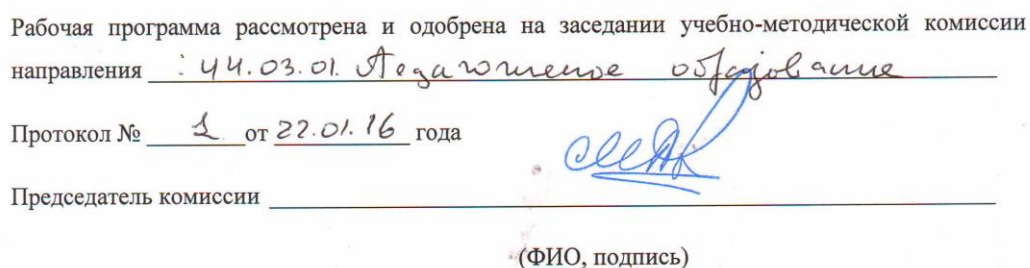 Рабочая программа рассмотрена и одобрена на заседании учебно-методической комиссии
направления : 44.03.01. Педагогическое образование
Протокол № 1 от 22.01.16 года
Председатель комиссии
(ФИО, подпись)